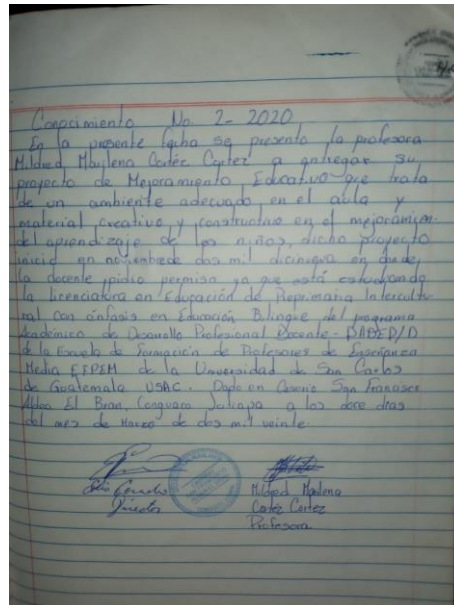 Conocimiento No. 2-2020
En la presente fecha se presento la profesora
Mildred Maylena Cortéz Cortez a entregar su
proyecto de Mejoramiento Educativo que trata
de un ambiente adecuado en el aula y
material creativo y constructivo en el mejoramien-
del aprendizaje de los niños, dicho proyecto
inició en noviembre de dos mil dicinueve en donde
la docente pidio permiso ya que está estudiando
la licenciatura en Educación de Preprimaria Intercultu-
ral con énfasis en Educación Bilingüe del programa
Académico de Desarrollo Profesional Docente - PADEP/D
de la Escuela de Formación de Profesores de Enseñanza
Media EFPEM de la Universidad de San Carlos
de Guatemala USAC. Dado en Caserio San Francisco
Aldea El Bran, Conguaco Jutiapa a los doce dias
del mes de Marzo de dos mil veinte.
Director
Mildred Maylena
Cortéz Cortez
Profesora.